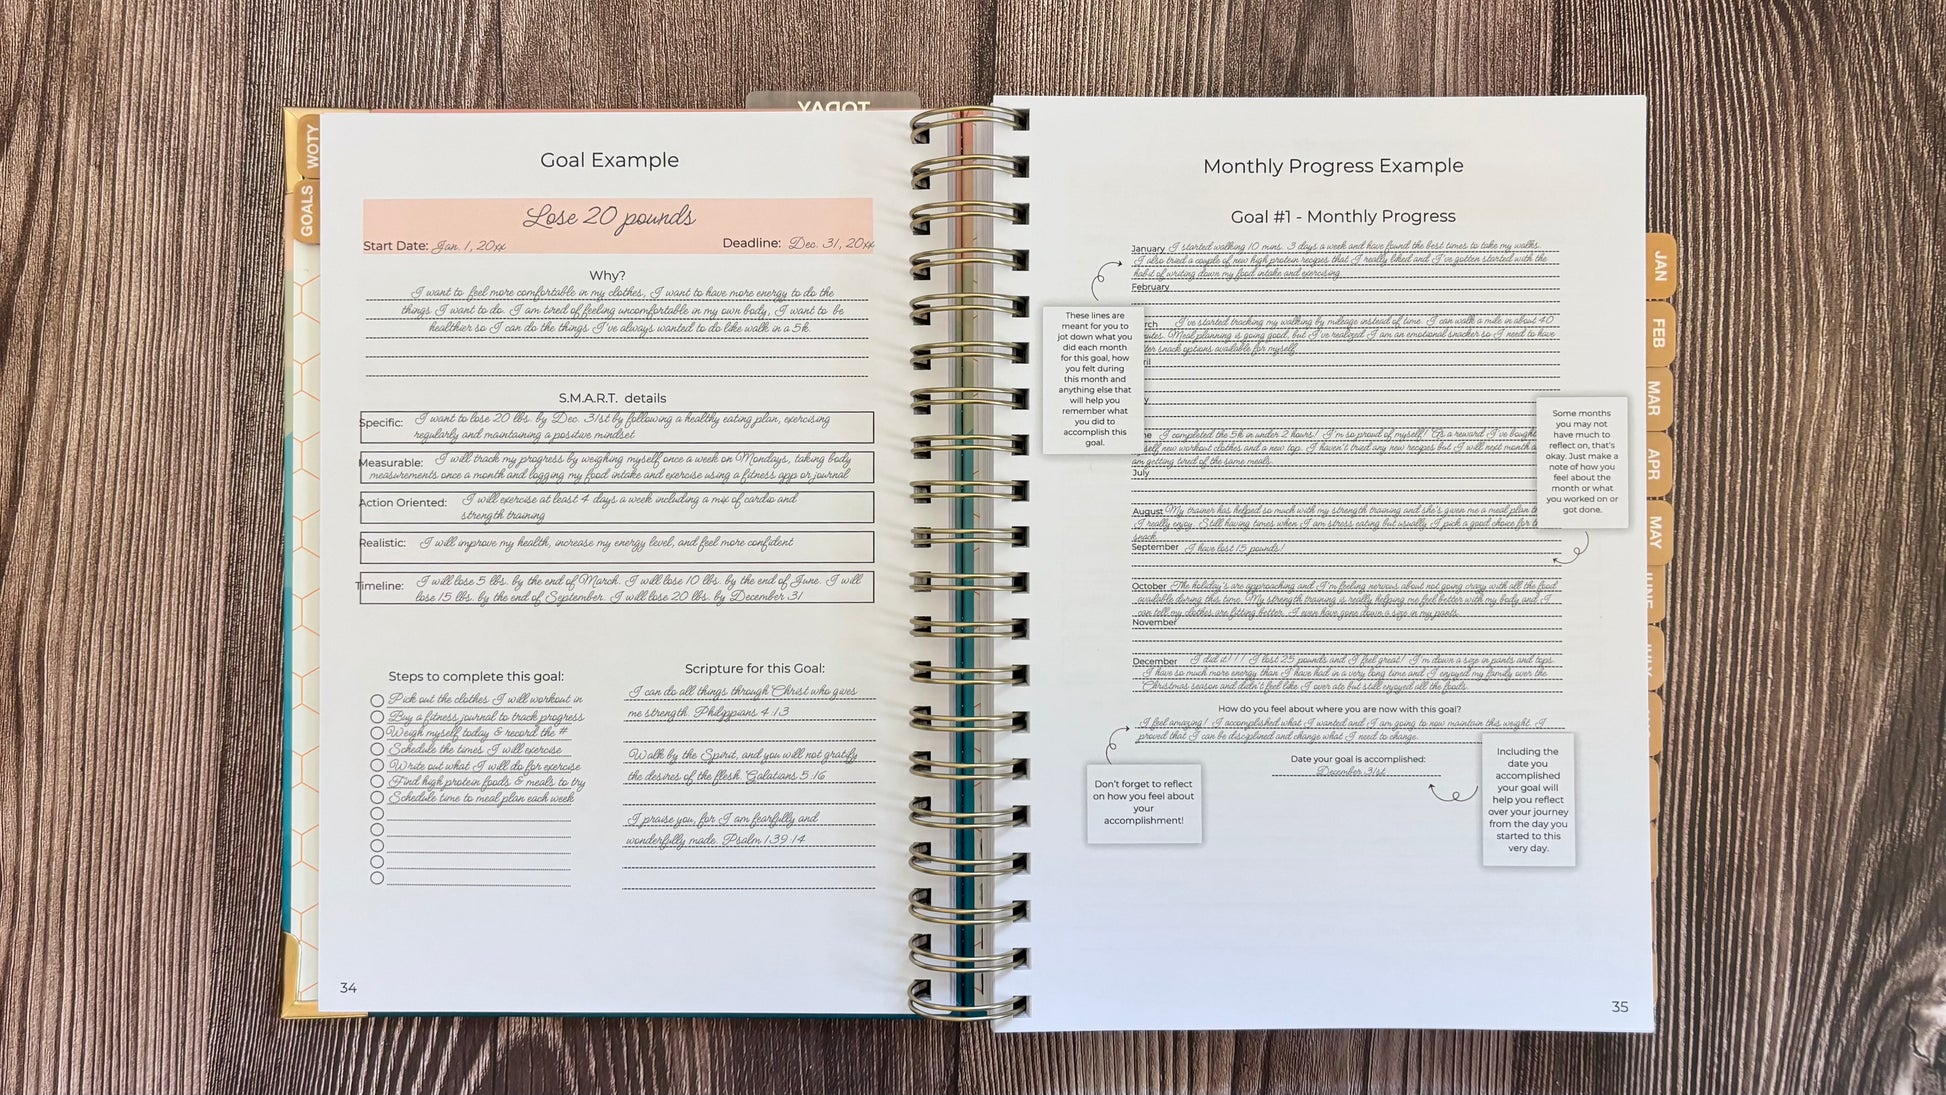 TODAY
WOTY
GOALS
Goal Example
Lose 20 pounds
Start Date: Jan. 1, 20xx
Deadline: Dec. 31, 20xx
Why?
I want to feel more comfortable in my clothes, I want to have more energy to do the
things I want to do. I am tired of feeling uncomfortable in my own body, I want to be
healthier so I can do the things I've always wanted to do like walk in a 5k.
S.M.A.R.T. details
Specific: I want to lose 20 lbs. by Dec. 31st by following a healthy eating plan, exercising
regularly and maintaining a positive mindset
Measurable: I will track my progress by weighing myself once a week on Mondays, taking body
measurements once a month and logging my food intake and exercise using a fitness app or journal
Action Oriented: I will exercise at least 4 days a week including a mix of cardio and
strength training
Realistic: I will improve my health, increase my energy level, and feel more confident
Timeline: I will lose 5 lbs. by the end of March. I will lose 10 lbs. by the end of June. I will
lose 15 lbs. by the end of September. I will lose 20 lbs. by December 31
Steps to complete this goal:
Pick out the clothes I will workout in
Buy a fitness journal to track progress
Weigh myself today & record the #
Schedule the times I will exercise
Write out what I will do for exercise
Find high protein foods & meals to try
Schedule time to meal plan each week
Scripture for this Goal:
I can do all things through Christ who gives
me strength. Philippians 4:13
Walk by the Spirit, and you will not gratify
the desires of the flesh. Galatians 5:16
I praise you, for I am fearfully and
wonderfully made. Psalm 139:14
34
Monthly Progress Example
Goal #1 - Monthly Progress
January I started walking 10 mins. 3 days a week and have found the best times to take my walks.
I also tried a couple of new high protein recipes that I really liked and I've gotten started with the
habit of writing down my food intake and exercising
February
rch I've started tracking my walking by mileage instead of time. I can walk a mile in about 40
nutes. Meal planning is going good, but I've realized I am an emotional snacker so I need to have
tter snack options available for myself.
ril
y
ne I completed the 5k in under 2 hours! I'm so proud of myself! As a reward I've bought
self new workout clothes and a new top. I haven't tried any new recipes but I will next month a
am getting tired of the same meals.
July
August My trainer has helped so much with my strength training and she's given me a meal plan
I really enjoy. Still having times when I am stress eating but usually I pick a good choice for
snack
September I have lost 15 pounds!
October The holiday's are approaching and I'm feeling nervous about not going crazy with all the food
available during this time. My strength training is really helping me feel better with my body and I
can tell my clothes are fitting better. I even have gone down a size in my pants.
November
December I did it!!! I lost 25 pounds and I feel great! I'm down a size in pants and tops.
I have so much more energy than I have had in a very long time and I enjoyed my family over the
Christmas season and didn't feel like I over ate but still enjoyed all the foods.
How do you feel about where you are now with this goal?
I feel amazing! I accomplished what I wanted and I am going to now maintain this weight. I
proved that I can be disciplined and change what I need to change.
Date your goal is accomplished:
December 31st
These lines are
meant for you to
jot down what you
did each month
for this goal, how
you felt during
this month and
anything else that
will help you
remember what
you did to
accomplish this
goal.
Some months
you may not
have much to
reflect on, that's
okay. Just make a
note of how you
feel about the
month or what
you worked on or
got done.
Don't forget to reflect
on how you feel about
your
accomplishment!
Including the
date you
accomplished
your goal will
help you reflect
over your journey
from the day you
started to this
very day.
35
JAN
FEB
MAR
APR
MAY
JUNE